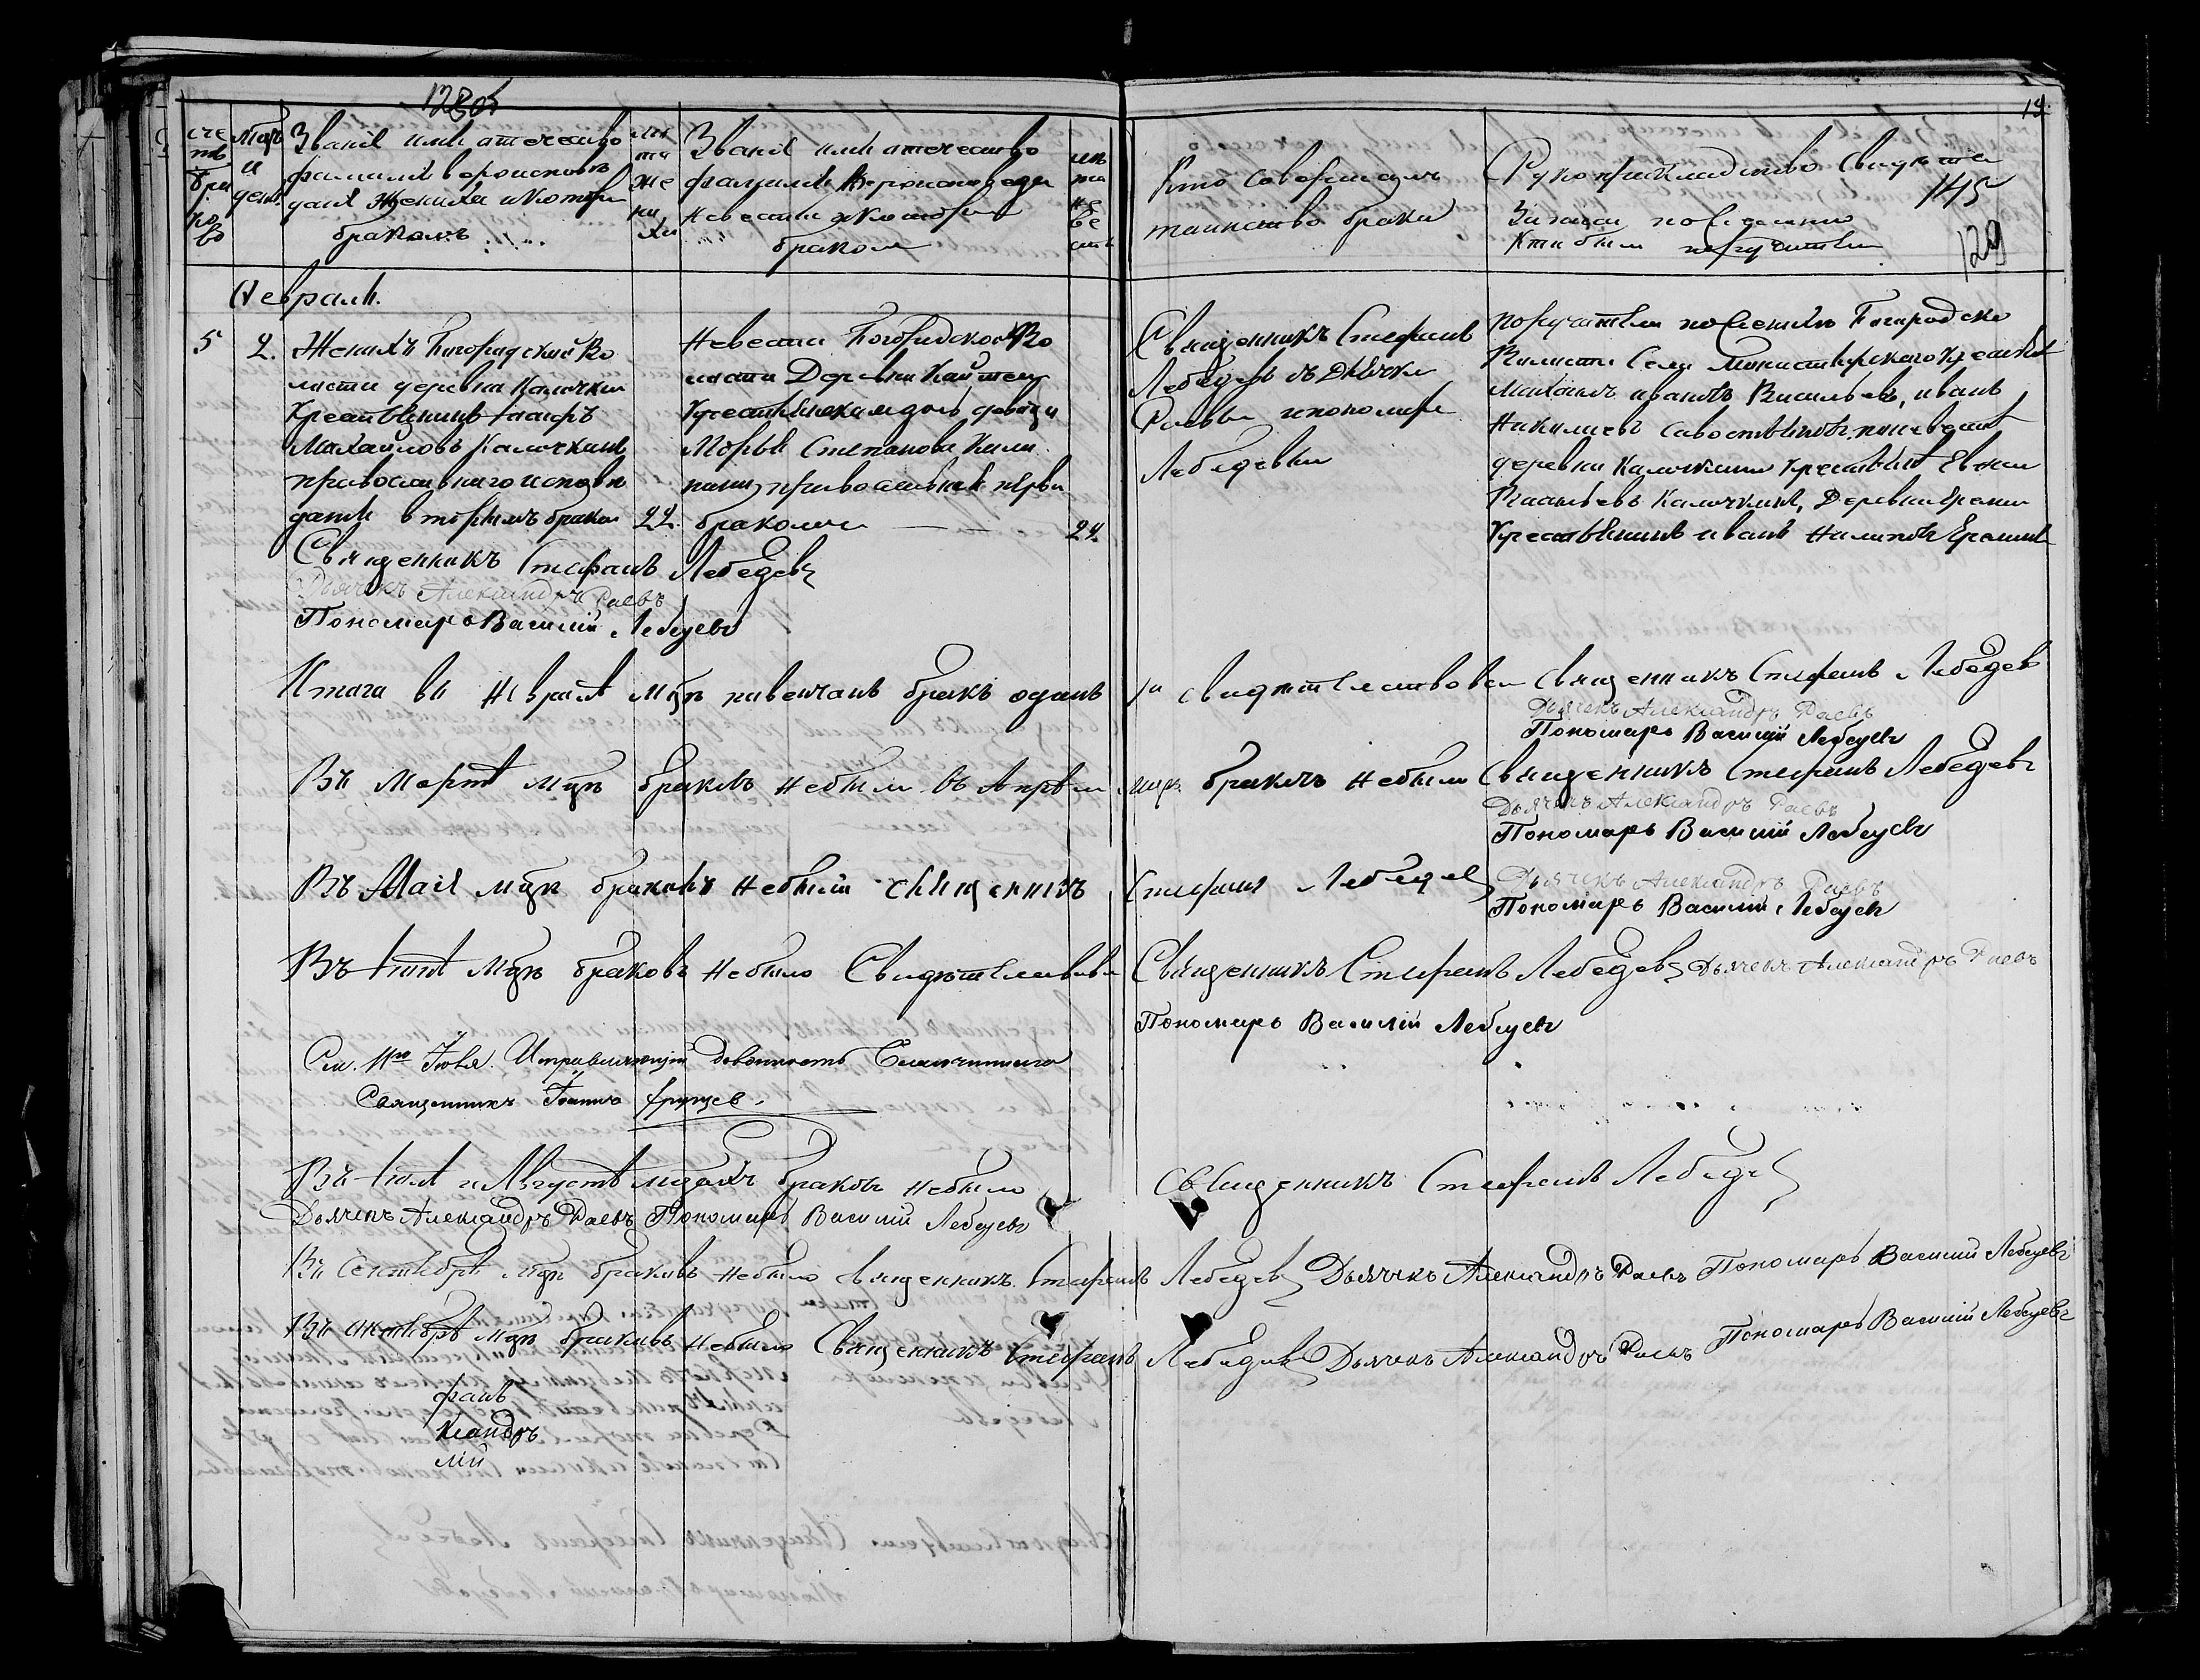 14.
145
129
Званія имя отечество
фамилія вероисповѣ
даніе жениха и которы
бракомъ
Званія имя отечество
фамилія вероисповеда
невесты и которы
бракомъ
Кто совершалъ
таинство брака
Рукоприкладство свидете
записи по желанію
кто были поручители
Февраля.
5 2. Женихъ Богородской Во
лости деревни Калочкина
Крестьянинъ
Михайловъ Калочкинъ
православнаго исповѣ
данія вторымъ бракомъ 22.
Невеста Богородской Во
лости Деревни
крестьянская дочь девица
Марья Степанова
православная первы
бракомъ 24.
Священникъ Стефанъ
Лебедевъ съ дьячкомъ
Раевымъ и пономаремъ
Лебедевымъ
поручители по женихѣ Богородско
Волости Села Монастырскаго крестьян
Михаилъ Ивановъ Васильевъ, иванъ
Николаевъ Савостьяновъ, по невесте
деревни Калочкина крестьян
Калочкинъ, Деревни
Крестьянинъ иванъ
Священникъ Стефанъ Лебедевъ
Дьячекъ Александръ Раевъ
Пономарь Василій Лебедевъ
Итого въ Февралѣ мцѣ повенчанъ бракъ одинъ
свидетельствовали Священникъ Стефанъ Лебедев
Дьячекъ Александръ Раевъ
Пономарь Василій Лебедевъ
Въ Мартѣ мцѣ браковъ небыло въ Апрѣли мцѣ браковъ небыло Священникъ Стефанъ Лебедевъ
Дьячекъ Александръ Раевъ
Пономарь Василій Лебедевъ
Въ Маiя мцѣ браковъ небыло священникъ Стефанъ Лебедев Дьячекъ Александръ Раевъ
Пономарь Василій Лебедевъ
Въ Iюнѣ мцѣ браковъ небыло Свидѣтельствовали Священникъ Стефанъ Лебедевъ Дьячекъ Александръ Раевъ
Пономарь Василій Лебедевъ
См. 11го Іюля. Исправляющій должность Благочиннаго
Священникъ Іоаннъ
Въ Iюлѣ и Августѣ мцахъ браковъ небыло Священникъ Стефанъ Лебедев
Дьячекъ Александръ Раевъ Пономарь Василій Лебедевъ
Въ Сентябрѣ мцѣ браковъ небыло священникъ Стефанъ Лебедевъ Дьячекъ Александръ Раевъ Пономарь Василій Лебедевъ
Въ октябрѣ мцѣ браковъ небыло Священникъ Стефанъ Лебедевъ Дьячекъ Александръ Раевъ Пономарь Василій Лебедевъ
фанъ
ксандръ
лій